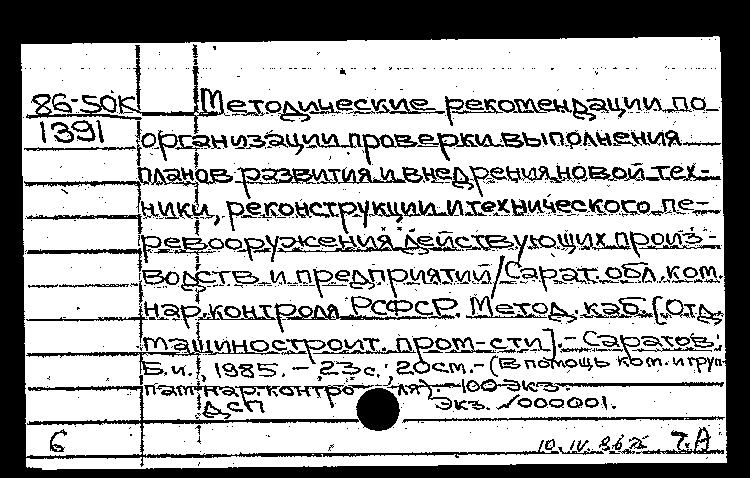 86-50К
1391
Методические рекомендации по
организации проверки выполнения
планов развития и внедрения новой тех-
ники, реконструкции и технического пе-
ревооружения действующих произ-
водств и предприятий/Сарат. обл. ком.
нар. контроля РСФСР. Метод. каб. [Отд.
машиностроит. пром-сти].- Саратов:
Б.и., 1985. - 23 с.; 20 см. - (В помощь ком. и груп-
пам нар. контроля). - 100 экз.
ДСП Экз. №000001.
6 10. IV. 86 Т.А